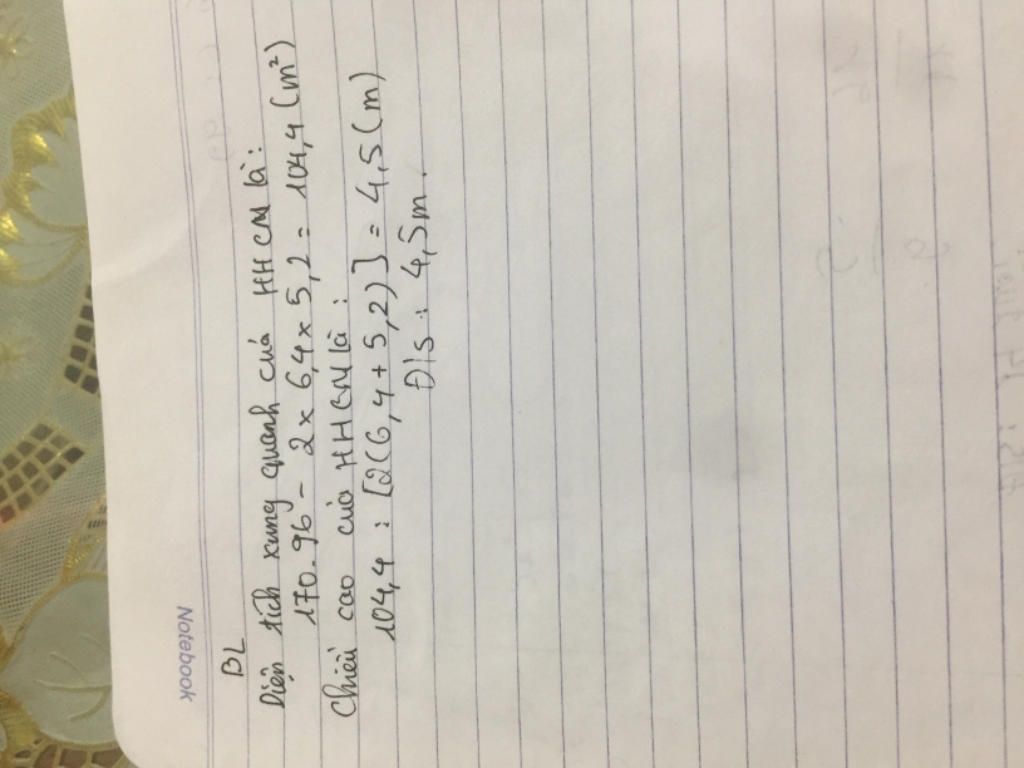 Notebook
BL
Diện tích xung quanh của HHCN là:
170.96 - 2 x 6,4 x 5,2 = 104,4 (m²)
Chiều cao của HHCN là:
104,4 : [2(6,4 + 5,2)] = 4,5 (m)
Đ/s: 4,5m.